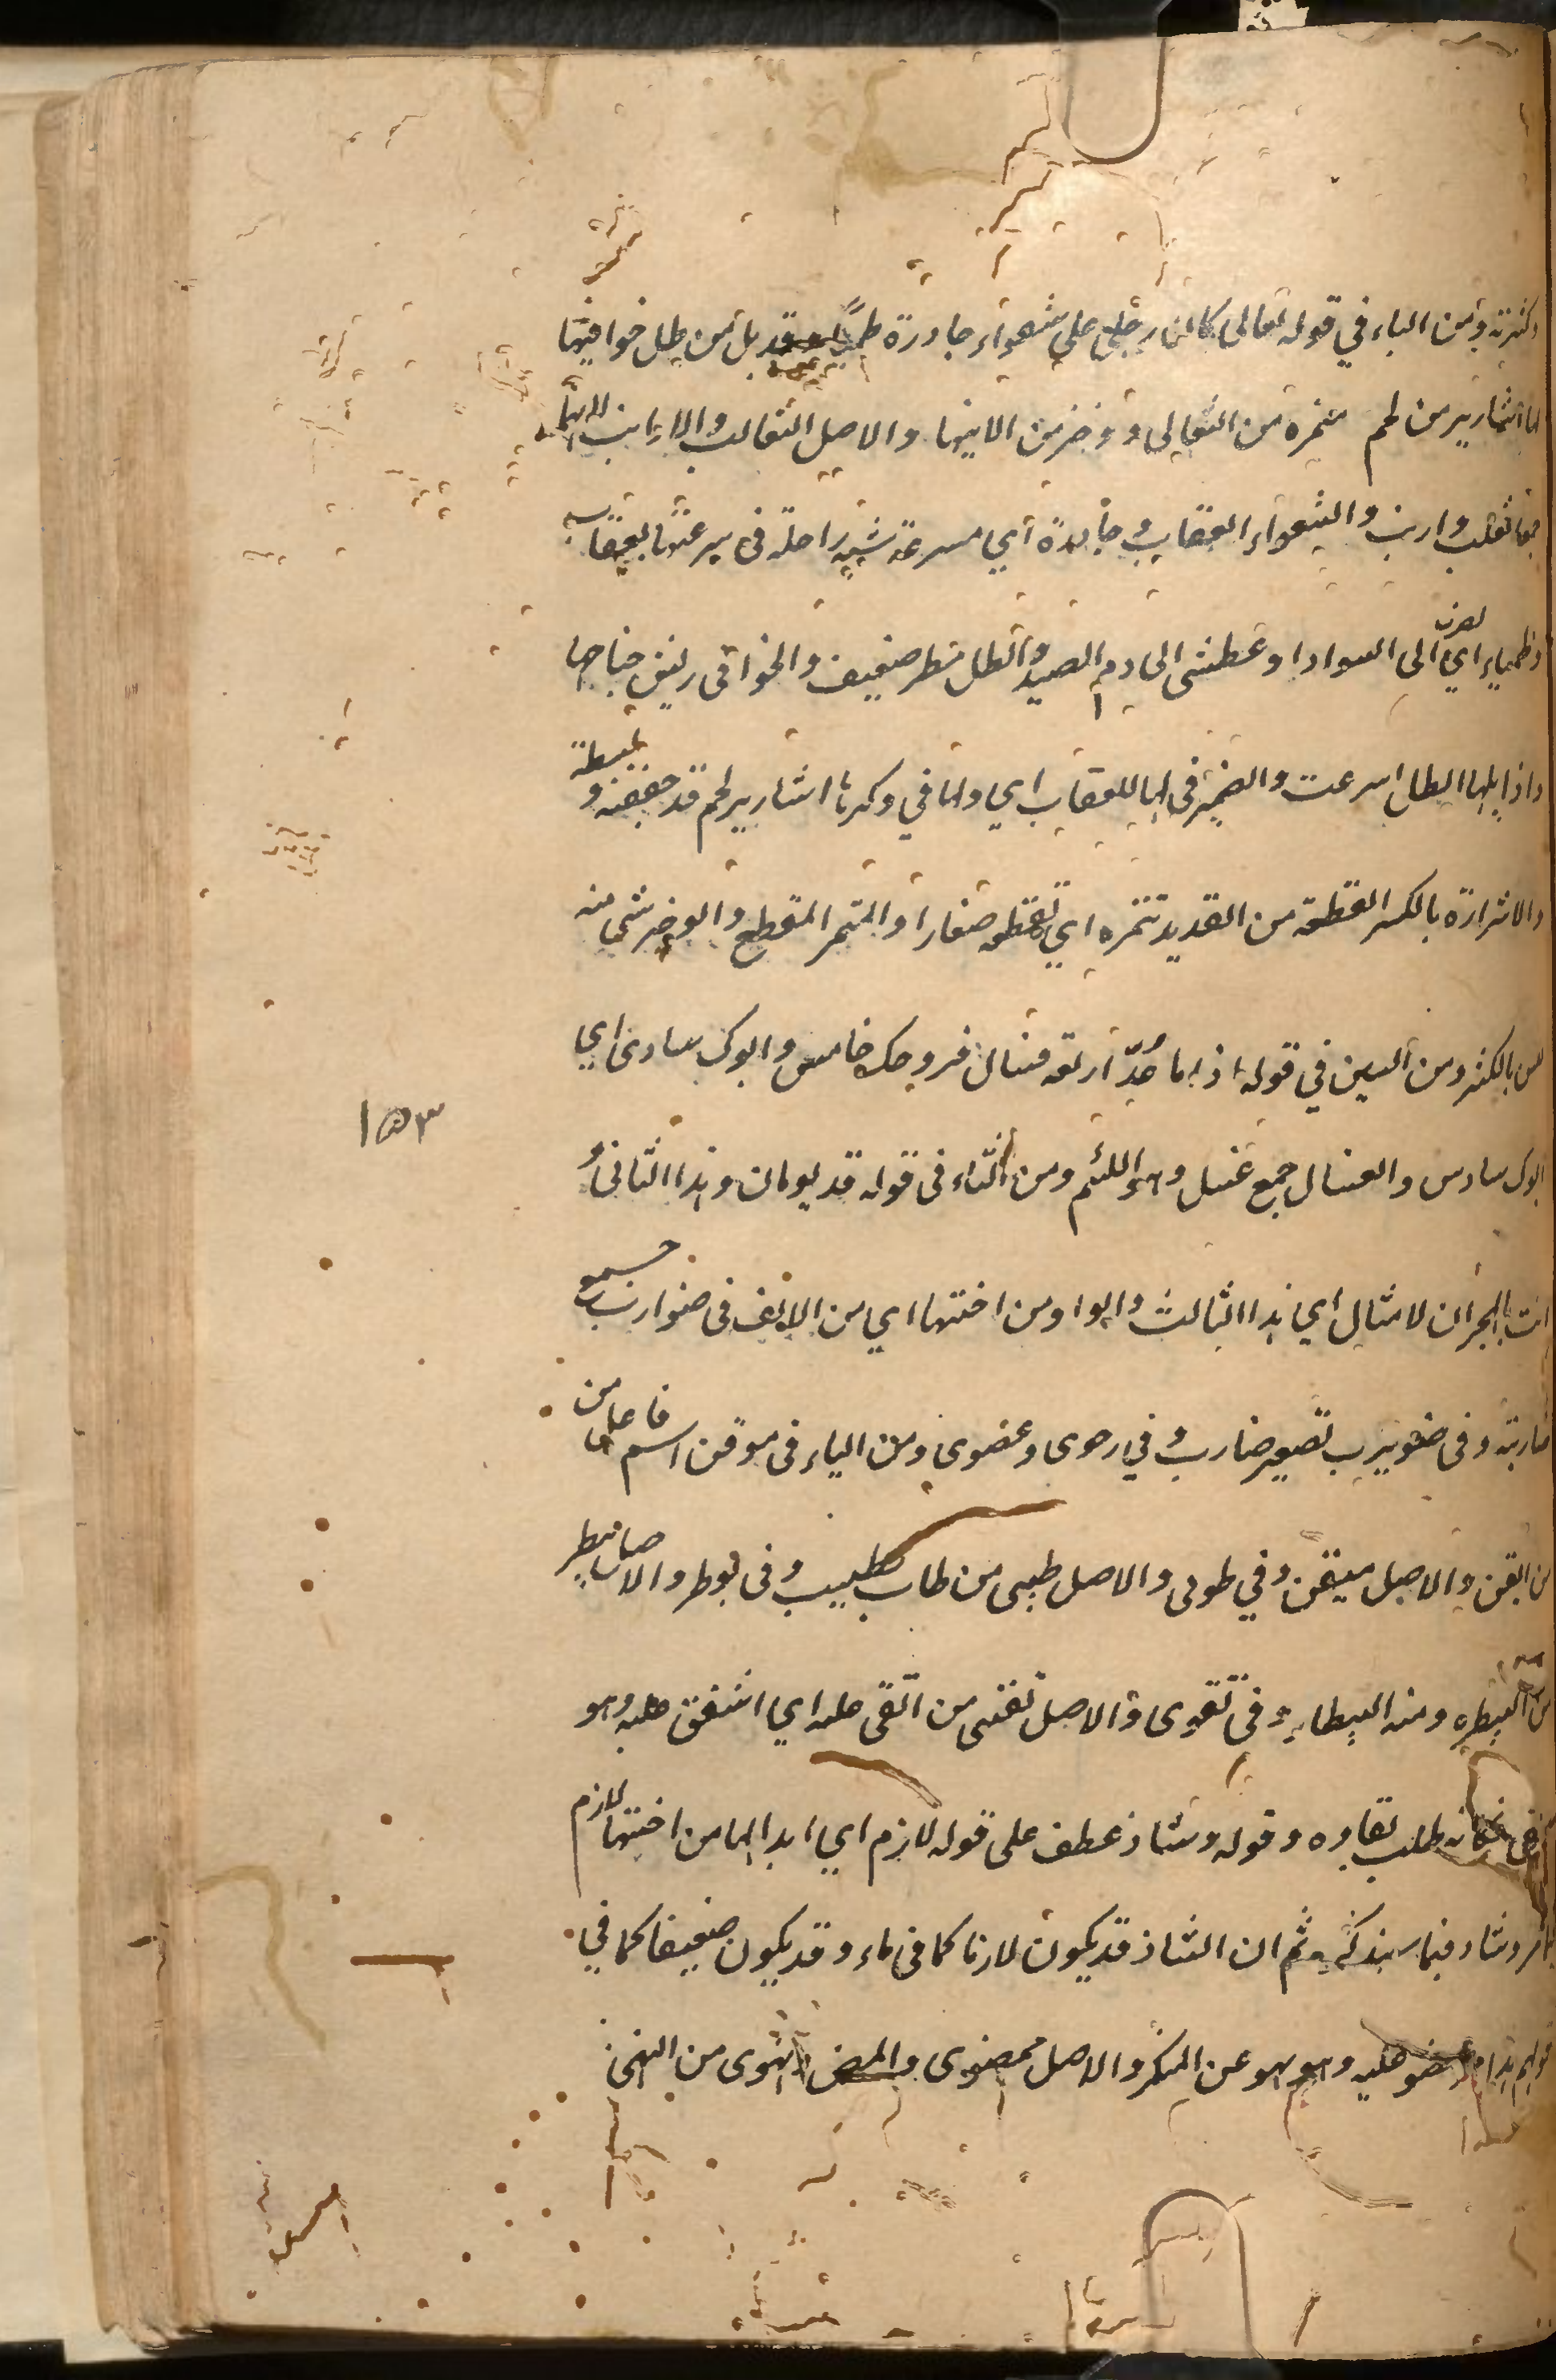 وكثرته ومن الباء في قوله تعالى كان رجلى على شعواء حادرة ظمياء قد بل من طل خوافيها
لها اشارير من لحم متمره من الثعالى ووخز من الارانيها والاصل الثعالب والارانب لانهما
جمعا ثعلب وارنب والشعواء العقاب وحادرة اي مسرعة شبه راحلته في سرعتها بعقاب
وظمياء اي تضرب الى السواد او عطشى الى دم الصيد والطل مطر ضعيف والخوافى ريش جناحها
واذا بلها الطل اسرعت والضمير فى لها للعقاب اي ولها في وكرها اشارير لحم قد جففته و
والاشرارة بالكسر القطعة من القديد تتمره اي تقطعه صغارا والمتمر المقطع والوخز شى منه
ليس بالكثير ومن السين في قوله اذا ما عُدّ اربعة فسال فزوجك خامس وابوك سادى اي
ابوك سادس والفسال جمع فسل وهو اللئيم ومن الثاء فى قوله قد يومان وهذا الثانى و
انت بالهجران لا تبالى اي هذا الثالث والواو من اختها اي من الالف فى ضوارب جمع
ضاربة وفى ضويرب تصغير ضارب وفي رحوى وعصوى ومن الياء فى موقن اسم فاعل من
من ايقن والاصل ميقن وفي طوبى والاصل طيبى من طاب يطيب وفى بوطر والاصل بيطر
من البيطره ومنه البيطار وفى تقوى والاصل تقيى من اتقى عليه اي اشفق عليه وهو
طلب بقاوه وقوله وشاذ عطف على قوله لازم اي ابدالها من اختها لازم
وشاذ فيما سنذكره ثم ان الشاذ قد يكون لازما كما فى ماء وقد يكون ضعيفا كما في
قولهم هذا ممضو عليه وهو نهو عن المنكر والاصل ممضوى والمضى ونهوى من النهى
١٥٣